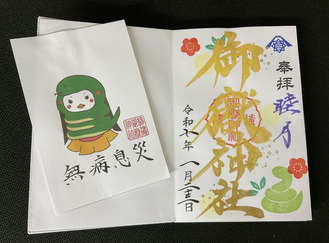 奉拝
睦月
御嶽神社
令和七年一月二十三日
無病息災